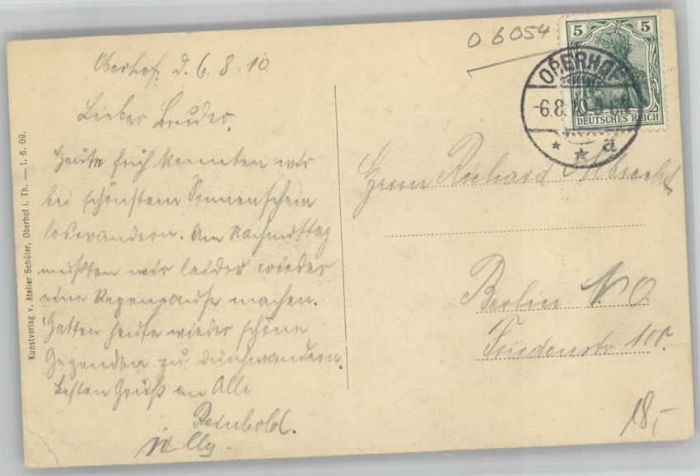 Oberhof, d. 6. 8. 10
Lieber Bruder.
Heute früh konnten wir
bei schönstem Sonnenschein
loswandern. Am Nachmittag
mußten wir leider wieder
eine Regenpause machen.
Hatten heute wieder schöne
Gegenden zu durchwandern.
Besten Gruß an Alle
Reinhold.
Willy.
Kunstverlag v. Atelier Schüler, Oberhof i. Th. — 1. 6. 09.
06054
5 5
DEUTSCHES REICH
OBERHOF
6.8.10
* * a
Herrn Richard Albrecht
Berlin NO.
Friedenstr 100.
18,-